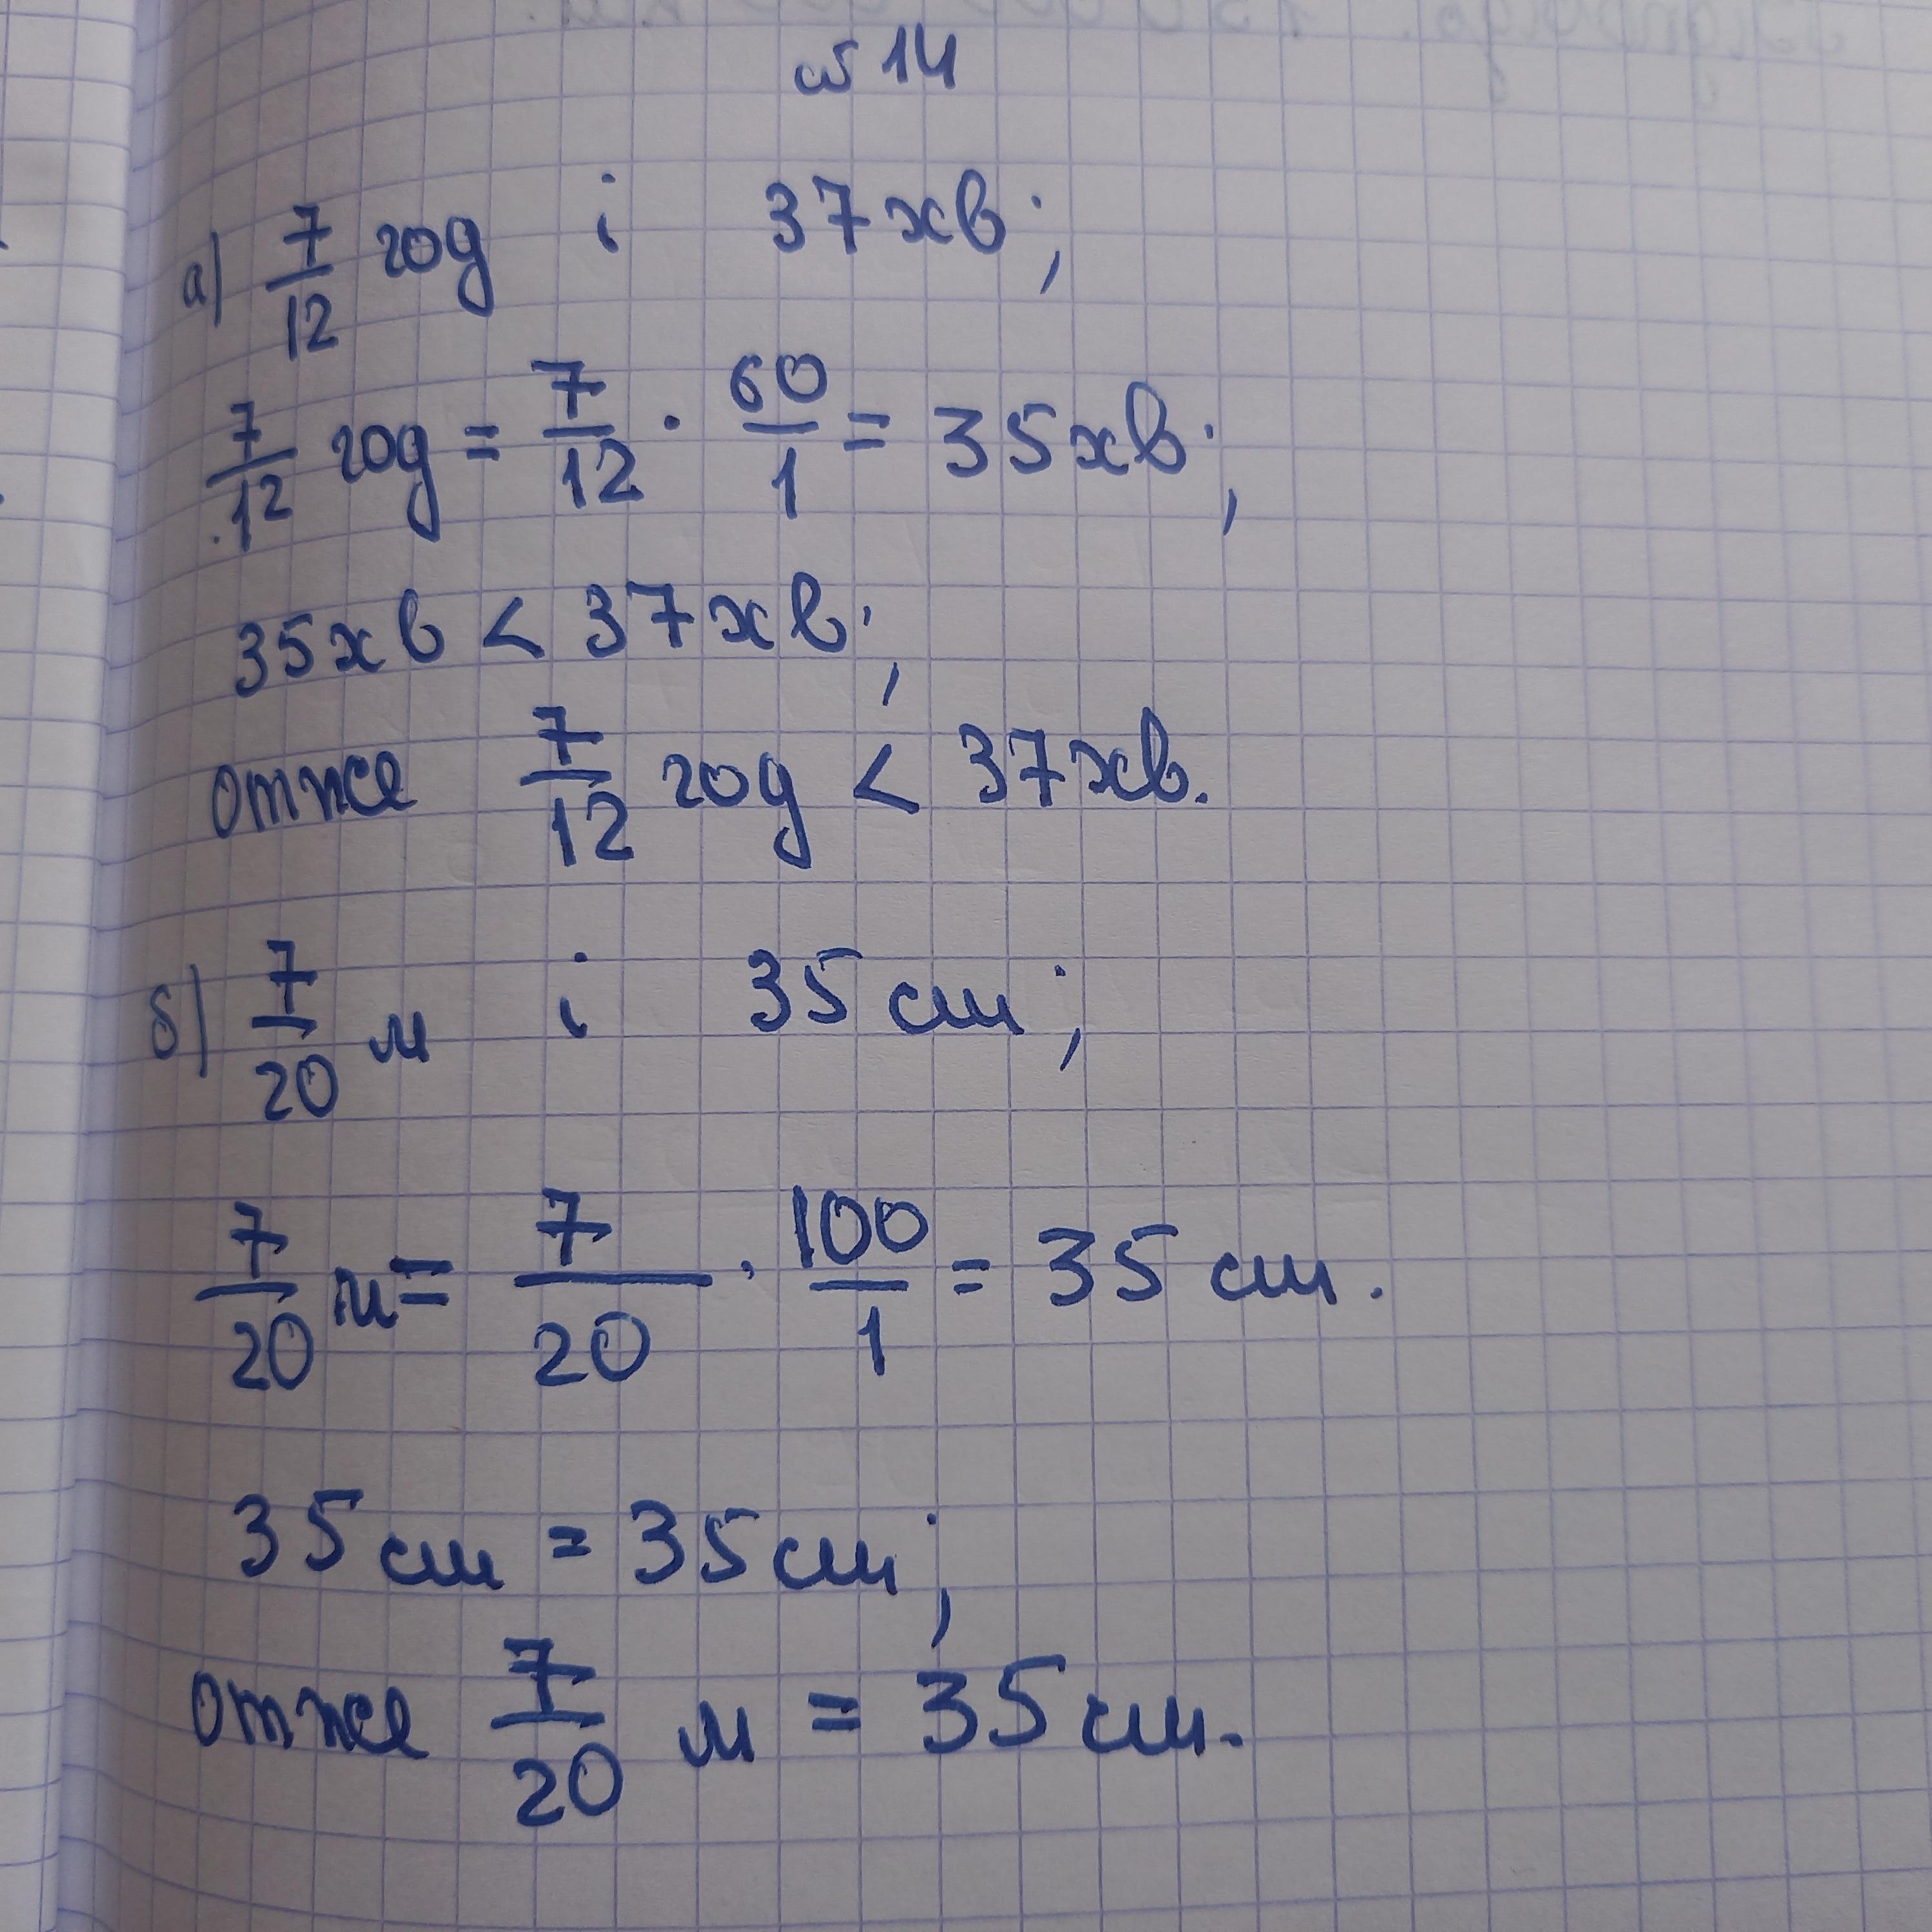 № 14
а) 7/12 год і 37 хв;
7/12 год = 7/12 · 60/1 = 35 хв;
35 хв < 37 хв;
отже 7/12 год < 37 хв.
б) 7/20 м і 35 см;
7/20 м = 7/20 · 100/1 = 35 см.
35 см = 35 см;
отже 7/20 м = 35 см.